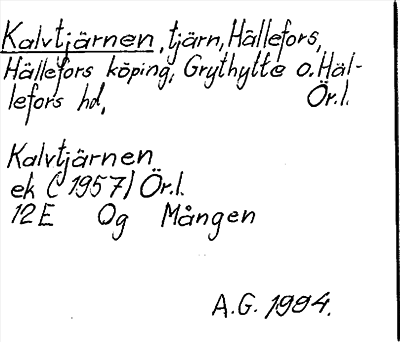 Kalvtjärnen, tjärn, Hällefors,
Hällefors köping, Grythytte o. Häl-
lefors hd, Ör.l.
Kalvtjärnen
ek C 1957/ Ör.l.
12E Og Mången
A.G. 1994.